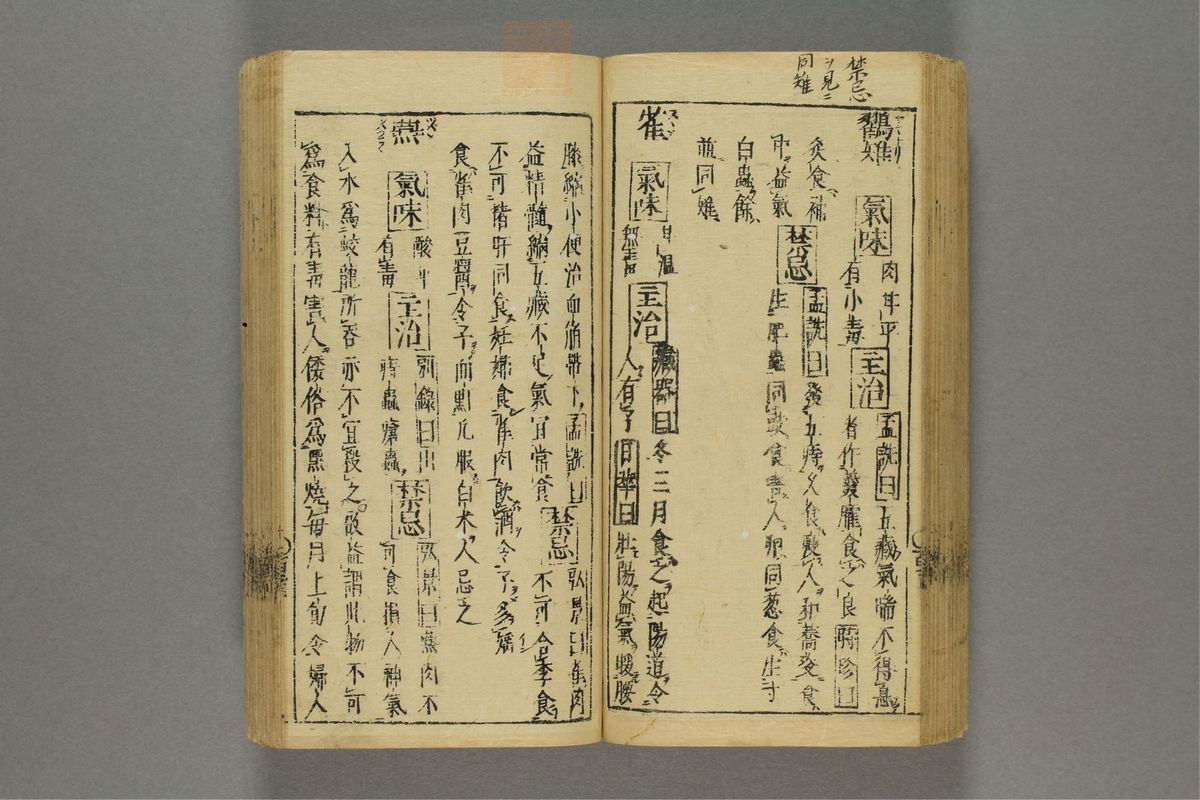 禁忌
見二
同雉
鸐雉
氣味
肉甘平
有小毒
主治
孟詵曰五藏氣喘不得息
者作羹臛食之良時珍曰
炙食補
中益氣
禁忌
孟詵曰發五痔久食瘦人和蕎麥食
生肥蟲同豉食害人卵同葱食生寸
白蟲餘
並同雉
雀
氣味
甘温
無毒
主治
藏器曰冬三月食之起陽道令
人有子日華曰壯陽益氣暖腰
膝縮小便治血崩帶下孟詵曰
益精髓續五藏不足氣宜常食
禁忌
弘景曰雀肉
不可合李食
不可諸肝同食妊婦食雀肉飲酒令子多婬
食雀肉豆醬令子面䵟凡服白朮人忌之
燕
氣味
酸平
有毒
主治
別錄曰出
痔蟲瘡蟲
禁忌
弘景曰燕肉不
可食損人神氣
入水爲蛟龍所吞亦不宜殺之故益謂此物不可
爲食料有毒害人倭俗爲黑燒每月上旬令婦人